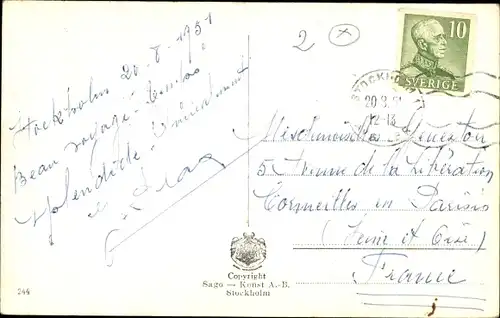 Stockholm 20-8-1951
Beau voyage - temps
splendide -
2 x
10
SVERIGE
STOCKHOLM
20.8.51
12-13
5 Avenue de la Libération
Cormeilles en Parisis
(Seine et Oise)
France
Copyright
Sago — Konst A.-B.
Stockholm
244